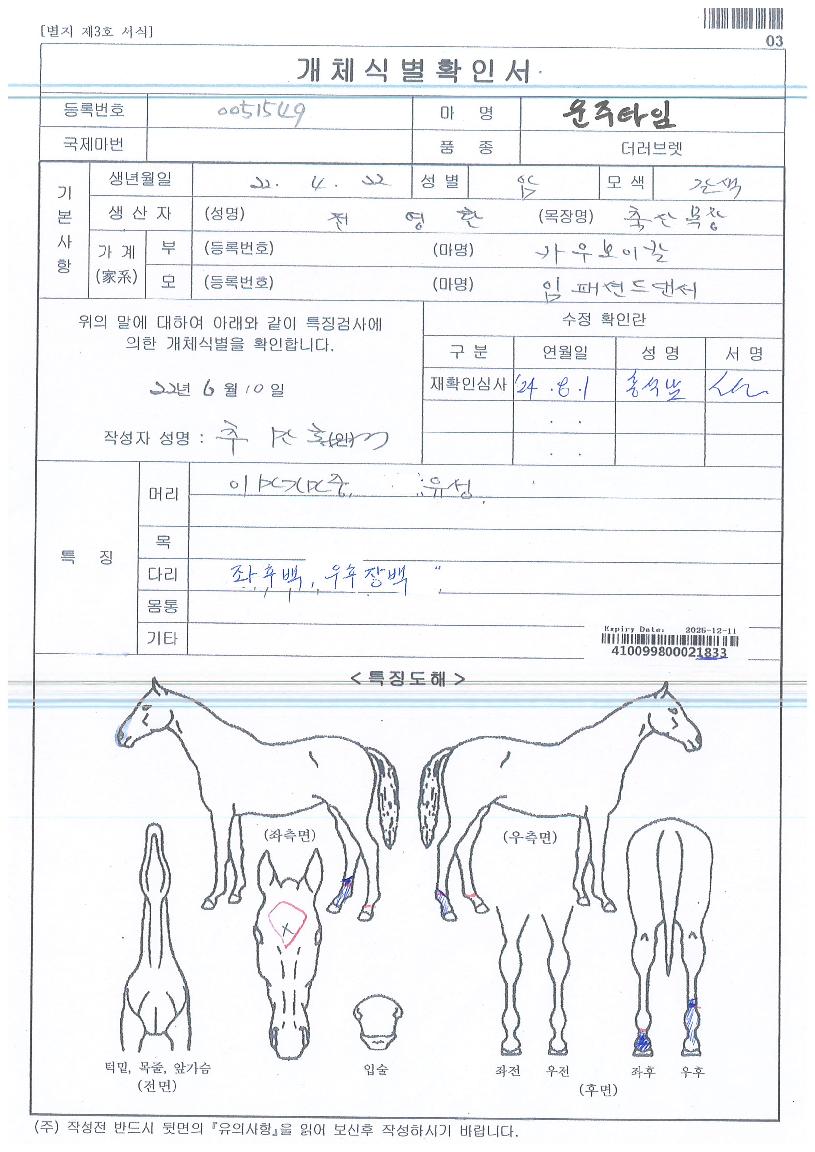 [별지 제3호 서식]
03
개체식별확인서
등록번호 0051549 마 명 운주타임
국제마번 품 종 더러브렛
기본사항
생년월일 22. 4. 22 성별 암 모색 갈색
생산자 (성명) 전 영 한 (목장명) 축산목장
가계(家系) 부 (등록번호) (마명) 카우보이칼
모 (등록번호) (마명) 임패션드댄서
위의 말에 대하여 아래와 같이 특징검사에
의한 개체식별을 확인합니다.
22년 6월 10일
작성자 성명 : (인)
수정 확인란
구 분 연월일 성 명 서 명
재확인심사 '24 .8.1
. .
. .
특 징
머리 유성
목
다리 좌후백, 우후장백
몸통
기타
Expiry Date: 2025-12-11
410099800021833
<특징도해>
(좌측면) (우측면)
턱밑, 목줄, 앞가슴 입술 좌전 우전 좌후 우후
(전면) (후면)
(주) 작성전 반드시 뒷면의 『유의사항』을 읽어 보신후 작성하시기 바랍니다.